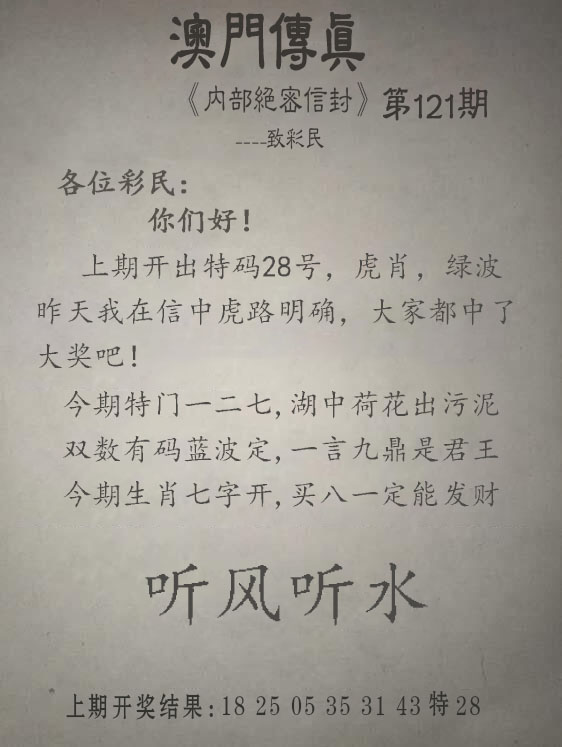 澳門傳眞
《内部絕密信封》第121期
----致彩民
各位彩民：
你们好！
上期开出特码28号，虎肖，绿波
昨天我在信中虎路明确，大家都中了
大奖吧！
今期特门一二七,湖中荷花出污泥
双数有码蓝波定,一言九鼎是君王
今期生肖七字开,买八一定能发财
听风听水
上期开奖结果:18 25 05 35 31 43特28